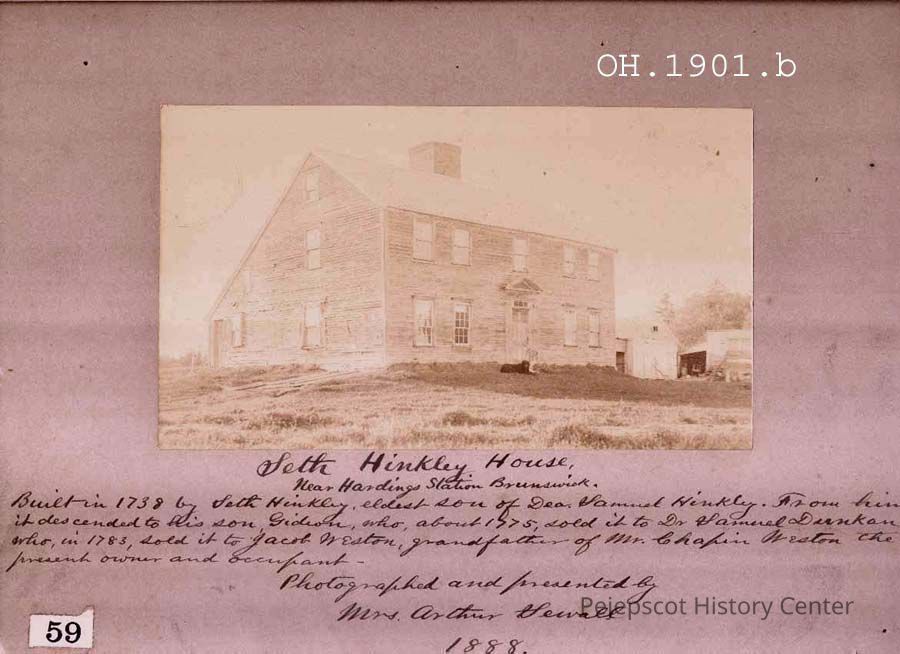 OH.1901.b
Seth Hinkley House,
Near Hardings Station Brunswick.
Built in 1738 by Seth Hinkley, eldest son of Dea. Samuel Hinkley. From him
it descended to his son, Gideon, who, about 1775, sold it to Dr Samuel Dunkan
who, in 1783, sold it to Jacob Weston, grandfather of Mr. Chapin Weston the
present owner and occupant -
Photographed and presented by
Mrs. Arthur Sewall
Pejepscot History Center
59
1888.